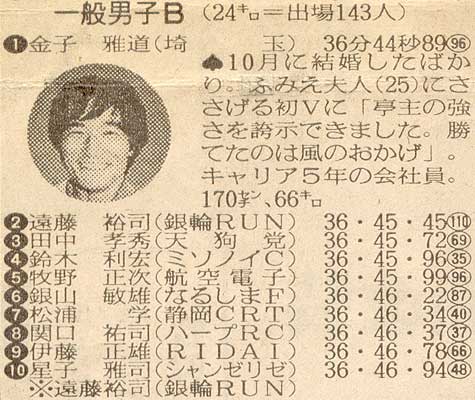 一般男子B (24㌔＝出場143人)
❶金子 雅道(埼 玉) 36分44秒89(96)
♠10月に結婚したばか
り。ふみえ夫人(25)にさ
さげる初Vに「亭主の強
さを誇示できました。勝
てたのは風のおかげ」。
キャリア5年の会社員。
170㌢、66㌔
❷遠藤 裕司(銀輪RUN) 36・45・45(110)
❸田中 孝秀(天狗党) 36・45・72(69)
❹鈴木 利宏(ミソノイC) 36・45・96(35)
❺牧野 正次(航空電子) 36・45・99(96)
❻銀山 敏雄(なるしまF) 36・46・22(87)
❼松浦 学(静岡CRT) 36・46・34(40)
❽関口 祐司(ハープRC) 36・46・37(37)
❾伊藤 正雄(RIDAI) 36・46・78(66)
❿星子 雅司(シャンゼリゼ) 36・46・94(48)
※遠藤裕司(銀輪RUN)